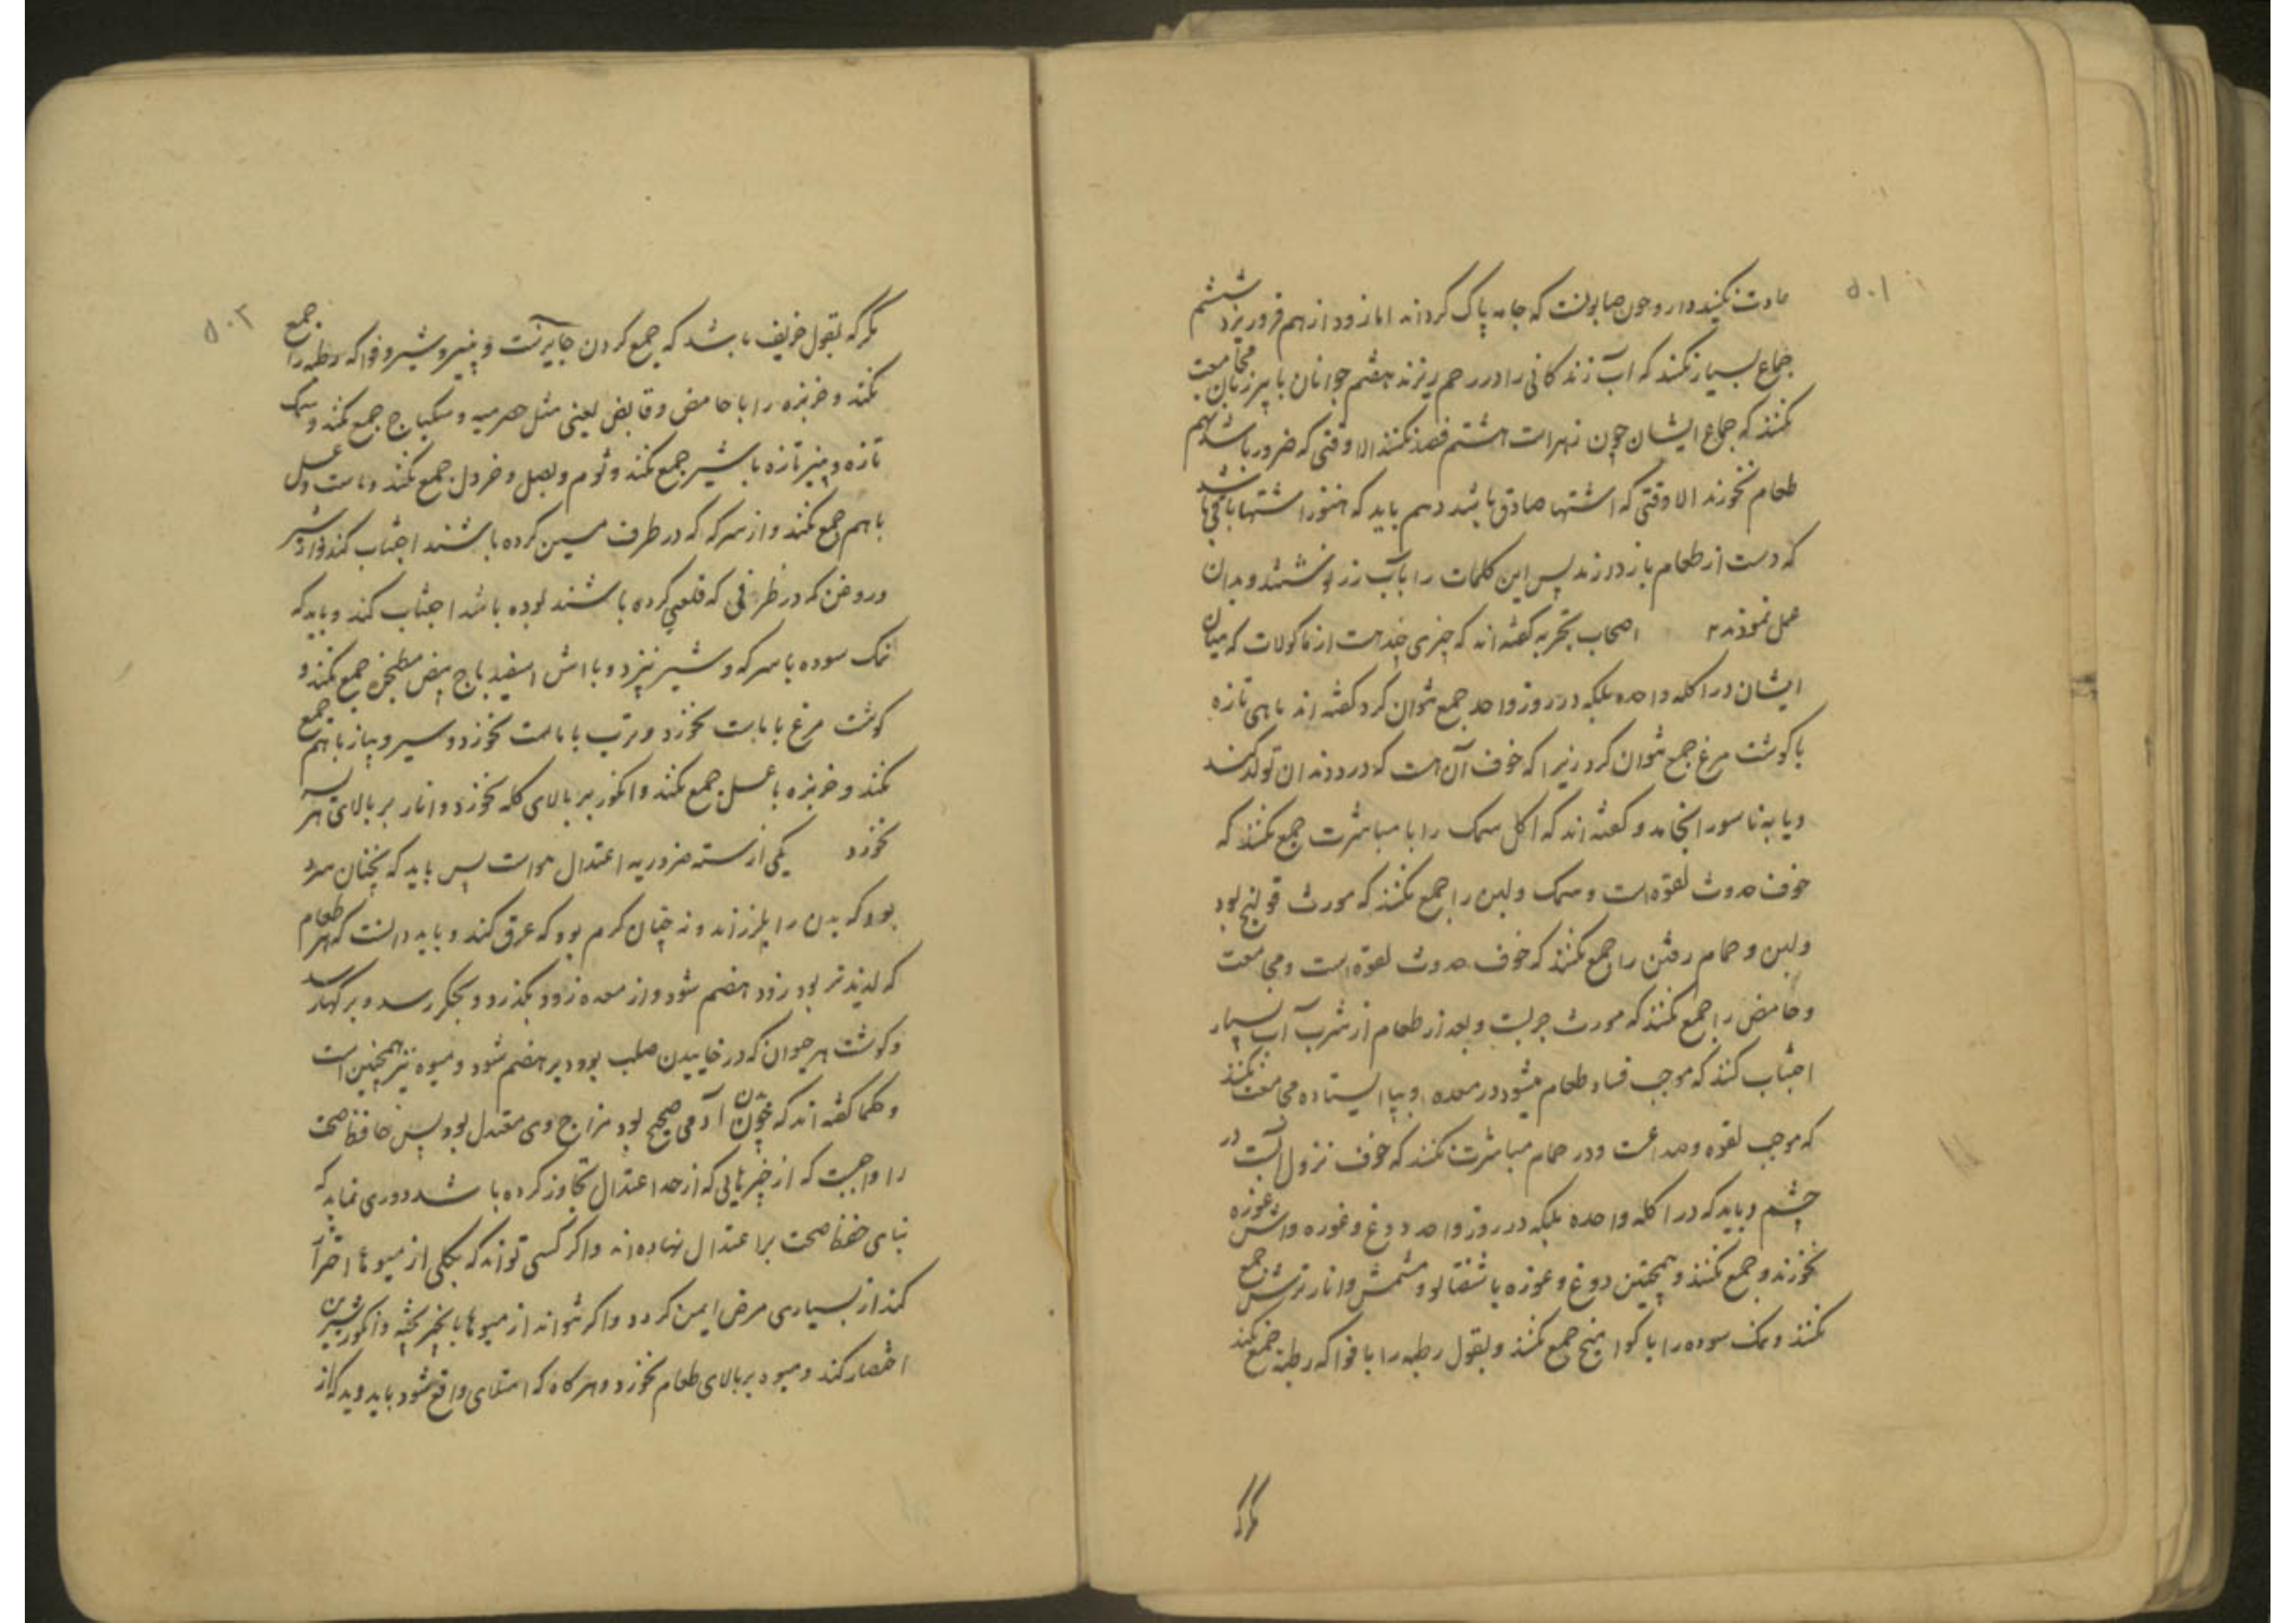 ۵۰۱
عادت نکنید دارو چون صابونست که جامه پاک کرداند اما زود از هم فرو ریزد ششم
جماع بسیار نکنند که آب زندکانی را در رحم ریزند هفتم جوانان با پیر زنان مجامعت
نکنند که جماع ایشان چون زهر است هشتم فصد نکنند الا وقتی که ضرور باشد نهم
طعام نخورند الا وقتی که اشتها صادق باشد دهم باید که هنوز اشتها باقی باشد
که دست از طعام باز دارند پس این کلمات را بآب زر نوشتند و بدان
عمل نمودند اصحاب تجربه کفته اند که چیزی چند است از ماکولات که میان
ایشان در اکله واحده بلکه در روز واحد جمع نتوان کرد کفته اند ماهی تازه
با کوشت مرغ جمع نتوان کرد زیرا که خوف آن هست که درد دندان تولد کند
و یا به ناسور انجامد و کفته اند که اکل سمک را با مباشرت جمع نکنند که
خوف حدوث لقوه است و سمک و لبن را جمع نکنند که مورث قولنج بود
و لبن و حمام رفتن را جمع نکنند که خوف حدوث لقوه است و مجامعت
و حامض را جمع نکنند که مورث جربست و بعد از طعام از شرب آب بسیار
اجتناب کنند که موجب فساد طعام میشود در معده و بپا ایستاده مجامعت نکنند
که موجب لقوه و صداعست و در حمام مباشرت نکنند که خوف نزول آبست در
چشم و باید که در اکله واحده بلکه در روز واحد دوغ و غوره و آش غوره
نخورند و جمع نکنند و همچنین دوغ و غوره با شفتالو و مشمش و انار ترش جمع
نکنند و نمک سوده را با کوامخ جمع نکنند و بقول رطبه را با فواکه رطبه جمع نکند
مکر که
۵۰۲
مکر که بقول خریف باشد که جمع کردن جایزست و پنیر و شیر و فواکه رطبه را جمع
نکند و خربزه را با حامض و قابض یعنی مثل حصرمیه و سکباج جمع نکند و سمک
تازه و پنیر تازه با شیر جمع نکند و ثوم و بصل و خردل جمع نکند و ماست و عسل
با هم جمع نکند و از سرکه که در ظرف مسین کرده باشند اجتناب کند و از شیر
و روغن که در ظرفی که قلعی کرده باشند بوده باشد اجتناب کند و باید که
نمک سوده با سرکه و شیر نپزد و با آش اسفیدباج بیض مطجن جمع نکند و
کوشت مرغ با ماست نخورد و ترب با ماست نخورد و سیر و پیاز با هم جمع
نکند و خربزه با عسل جمع نکند و انکور بر بالای کله نخورد و انار بر بالای هریسه
نخورد یکی از سته ضروریه اعتدال هواست پس باید که نچنان سرد
بود که بدن را بلرزاند و نه چنان کرم بود که عرق کند و باید دانست که هر طعام
که لذیذتر بود زود هضم شود و از معده زود بکذرد و بجکر رسد و بر کها رسد
و کوشت هر حیوان که در خاییدن صلب بود دیر هضم شود و میوه نیز همچنین است
و حکما کفته اند که چون خون آدمی صحیح بود مزاج وی معتدل بود پس حافظ صحت
را واجبست که از چیزهایی که از حد اعتدال تجاوز کرده باشد دوری نماید که
بنای حفظ صحت بر اعتدال نهاده اند و اکر کسی تواند که بکلی از میوها احتراز
کند از بسیاری مرض ایمن کردد و اکر نتواند از میوها بانجیر پخته و انکور شیرین
اختصار کند و میوه بر بالای طعام نخورد و هرکاه که امتلای واقع شود باید دید که از